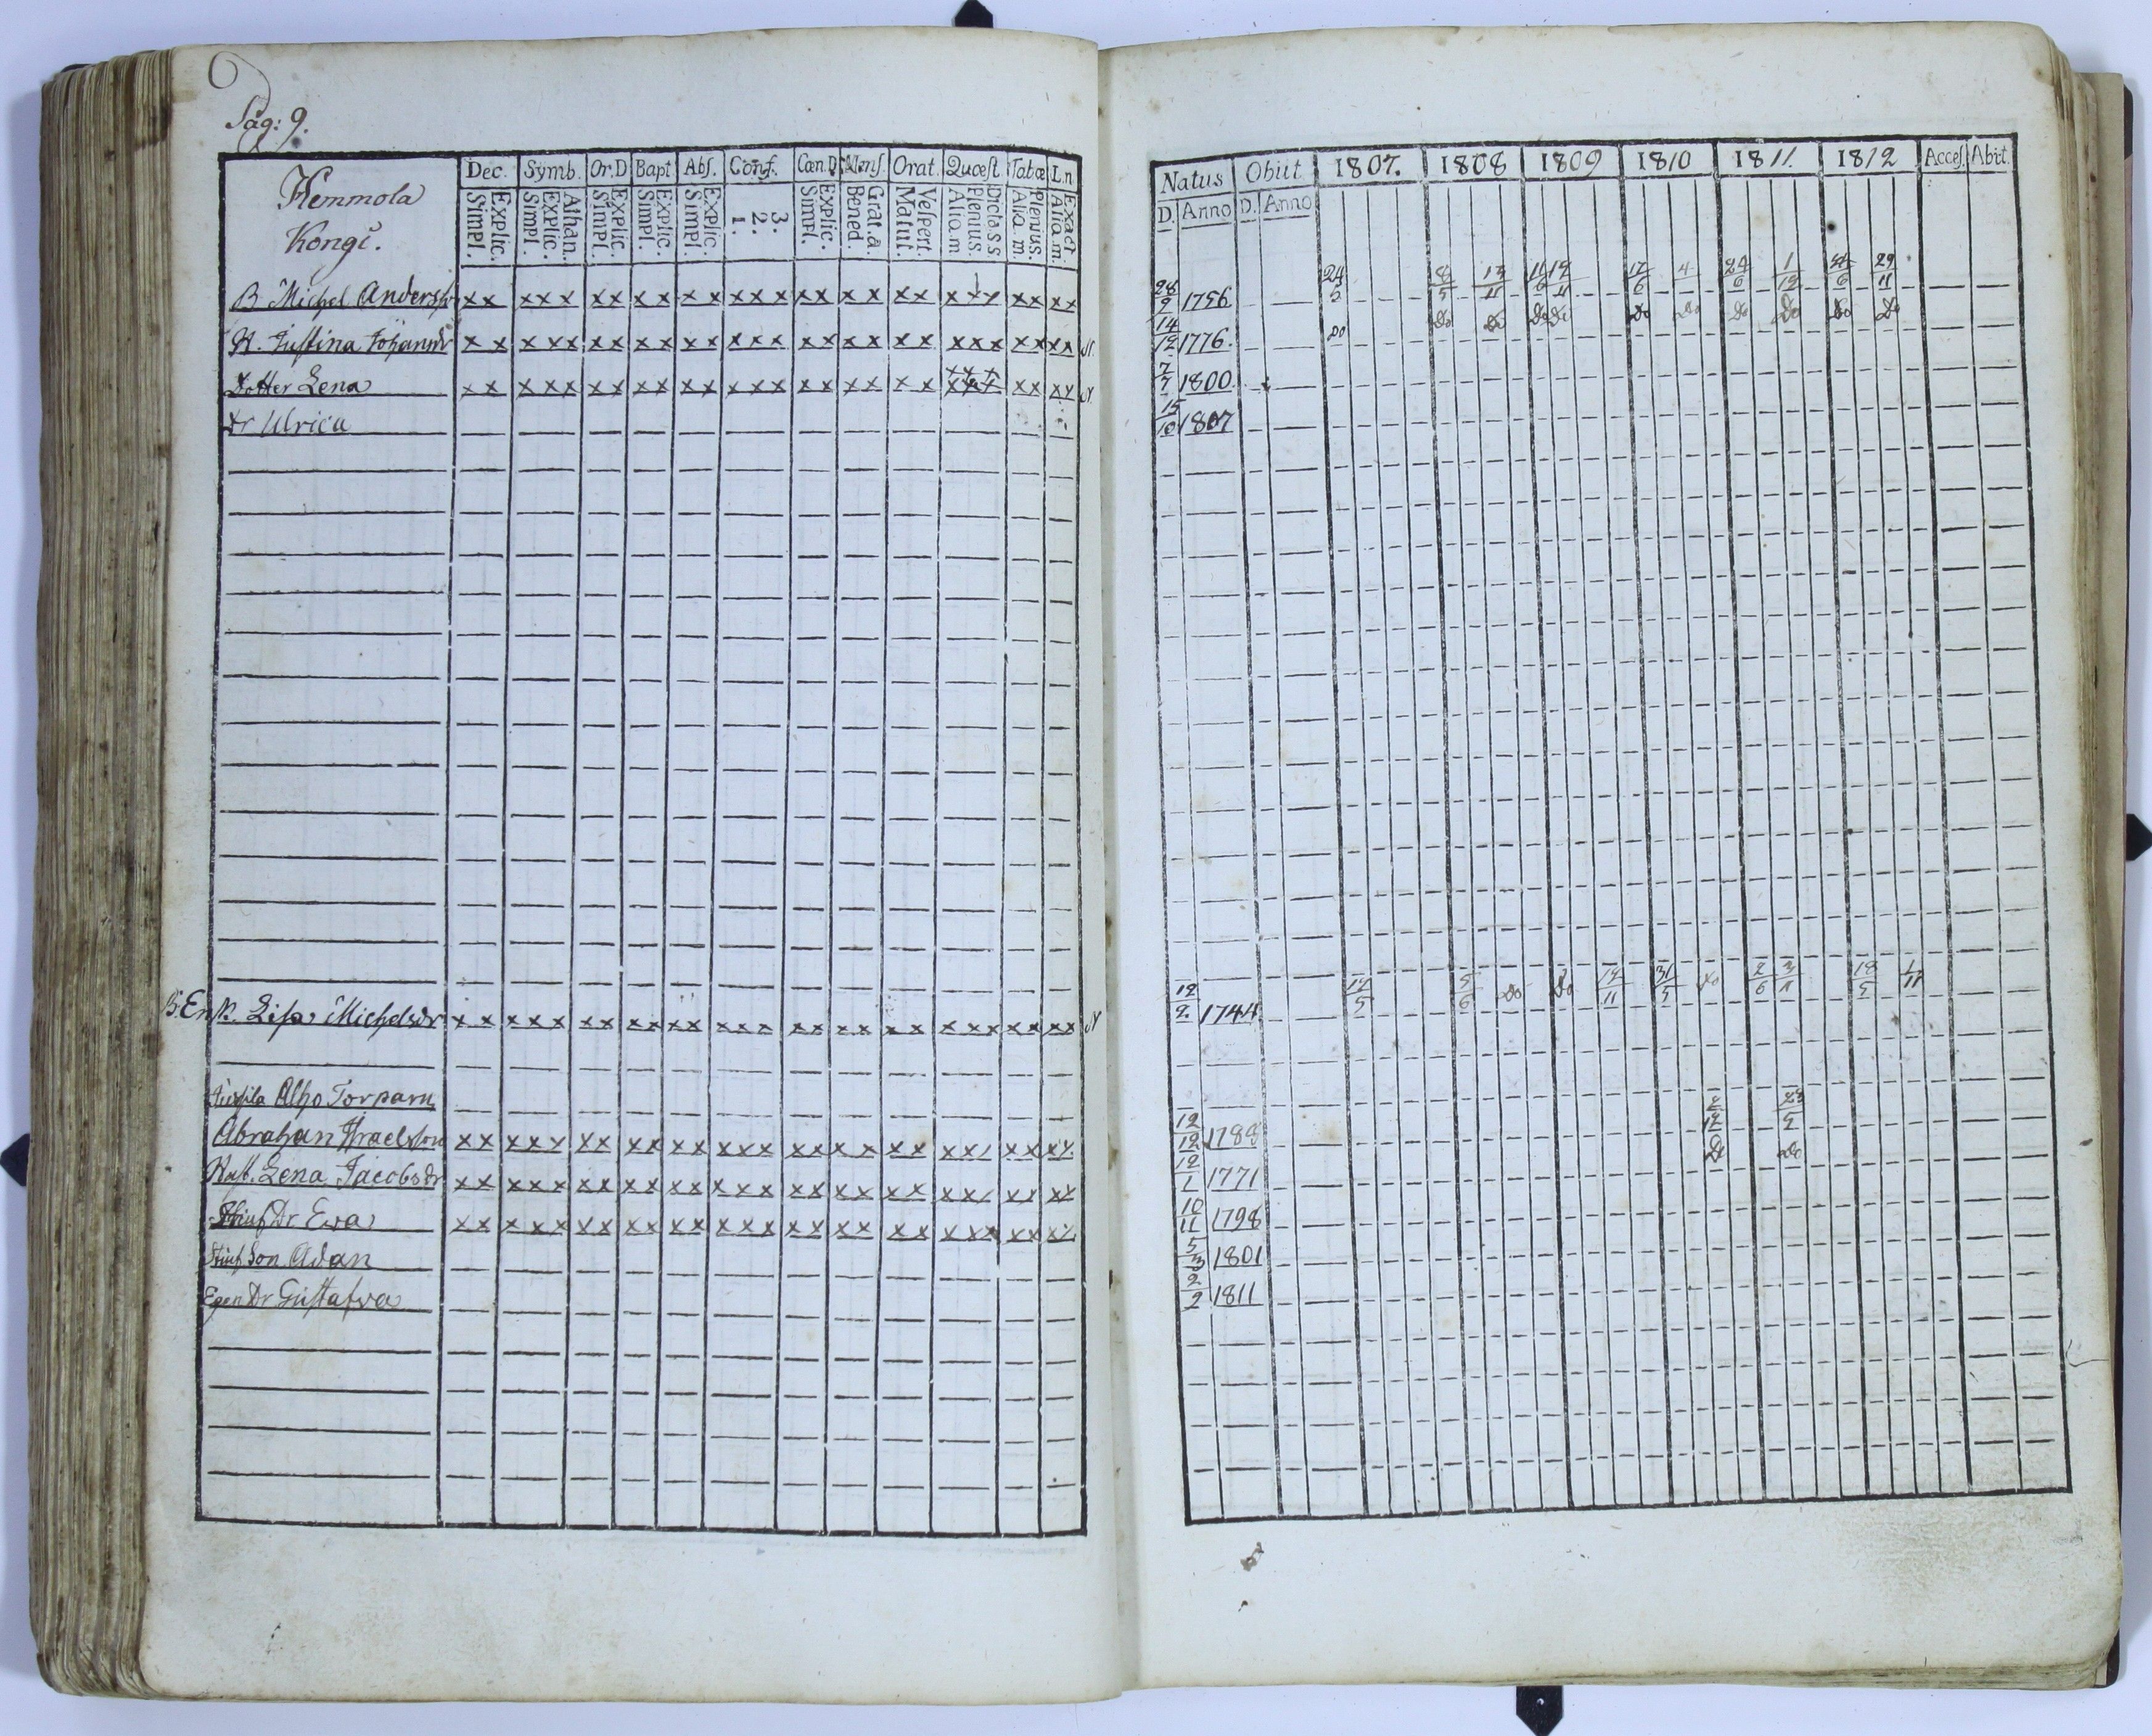 Pag: 9.
Hemmola
Kongi.
Dec. Symb. Or.D Bapt Abs. Conf. Cœn.D Mens. Orat. Quœst Tabœ Ln
Simpl. Explic. Simpl. Explic. Athan. Simpl. Explic. Simpl. Explic. Simpl. Explic. 1. 2. 3. Simpl. Explic. Bened. Grat.a. Matut. Vespert. Alio m Plenius. Dicta SS Alio m. Plenius. Alia m. Exact
B Michel Anderss xx xxx xx xx xx xxx xx xx xx xxx xx xx
H. Justina Johansdr xx xxx xx xx xx xxx xx xx xx xxx xx xx
Dotter Lena xx xxx xx xx xx xxx xx xx xx xxx xx xx
dr Ulrica
B: Enk. Lisa Michelsdr xx xxx xx xx xx xxx xx xx xx xxx xx xx
Alho Torparn
Abraham Israelsson xx xxx xx xx xx xxx xx xx xx xxx xx xx
Hust. Lena Jacobsdr xx xxx xx xx xx xxx xx xx xx xxx xx xx
Stiuf Dr Eva xx xxx xx xx xx xxx xx xx xx xxx xx xx
Stiuf Son Adam
Egen Dr Gustafva
Natus Obiit 1807. 1808 1809 1810 1811. 1812 Acces. Abiit.
D. Anno D. Anno
28/9 1756 24/5 8/5 13/11 12/11 17/6 4 24/6 1/12 29/11
14/12 1776 Do Do Do Do Do Do Do Do Do Do Do
7/7 1800
15/10 1807
12/2 1744 17/5 5/6 Do Do 12/11 31/5 Do 2/6 3/11 18/5 1/11
12/12 1788 2/12 23/5
12/1 1771 Do Do
10/11 1798
5/3 1801
2/2 1811